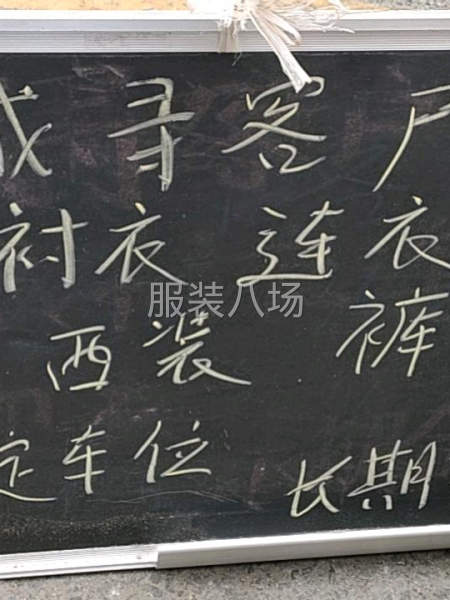 成寻客户
衬衣 连衣
西装 裤
定车位 长期
服装八场